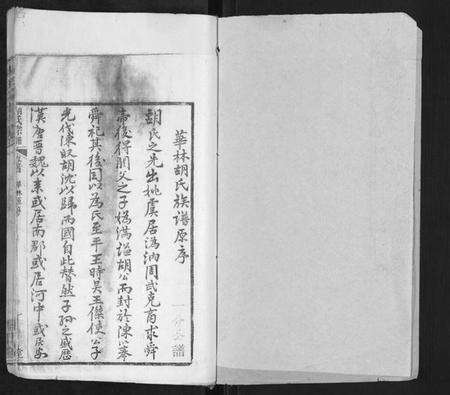 華林胡氏族譜原序
胡氏之先出姚虞居溈汭周武克商求舜
帝後得閼父之子媯滿謚胡公而封於陳以奉
舜祀其後因以為氏至平王時吳王僚使公子
光伐陳敗胡沈以歸而國自此替然子孫之盛歷
漢唐晉魏以來或居南郡或居河中或居安